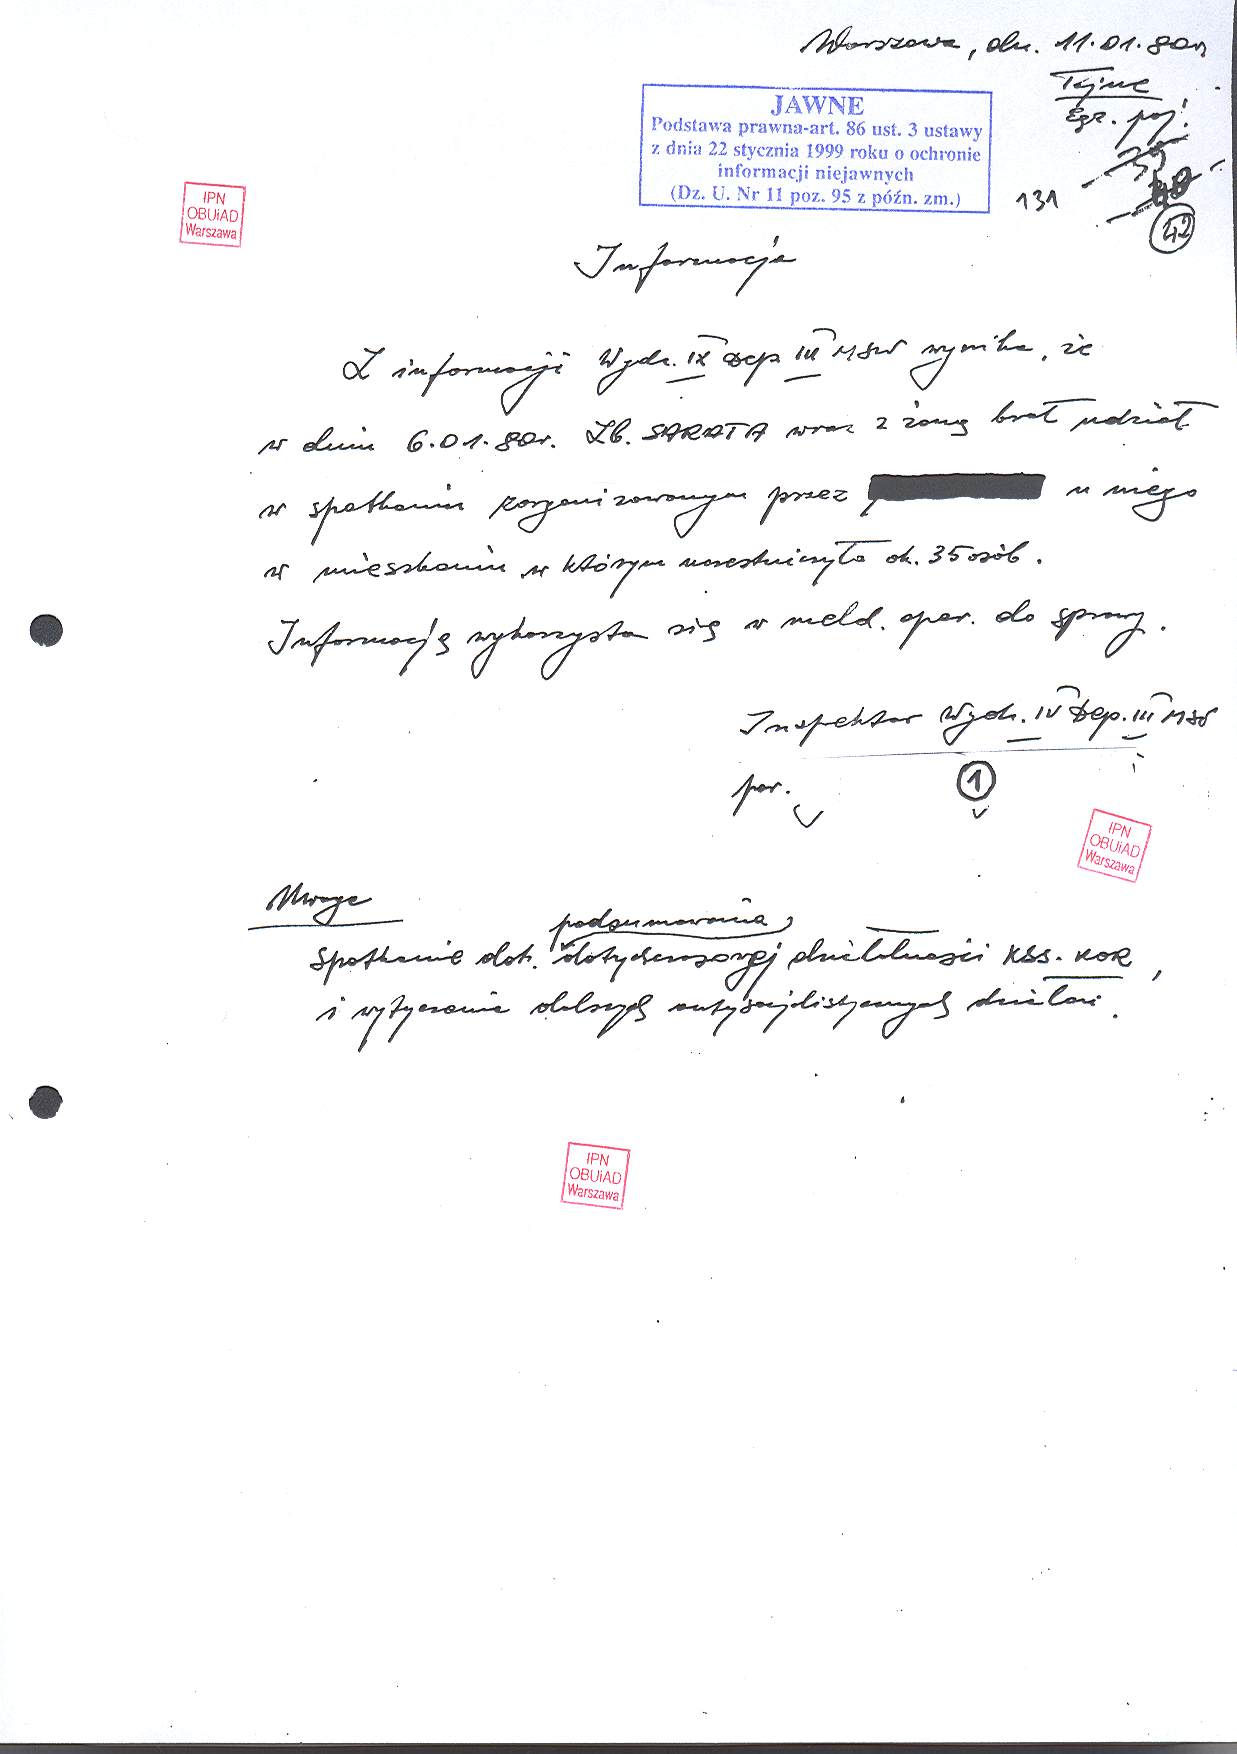 Warszawa, dn. 11.01.80r
Tajne
Egz. poj.
JAWNE
Podstawa prawna-art. 86 ust. 3 ustawy
z dnia 22 stycznia 1999 roku o ochronie
informacji niejawnych
(Dz. U. Nr 11 poz. 95 z późn. zm.)
39
40
131
42
IPN
OBUiAD
Warszawa
Informacja
Z informacji Wydz. IX Dep III MSW wynika, że
w dniu 6.01.80r. Zb. SARATA wraz z żoną brał udział
w spotkaniu zorganizowanym przez u niego
w mieszkaniu w którym uczestniczyło ok. 35 osób.
Informację wykorzysta się w meld. oper. do sprawy.
Inspektor Wydz. IV Dep. III MSW
por. 1
IPN
OBUiAD
Warszawa
Uwaga
podsumowania
Spotkanie dot. dotychczasowej działalności KSS-KOR,
i wytyczenie dalszych antysocjalistycznych działań.
IPN
OBUiAD
Warszawa